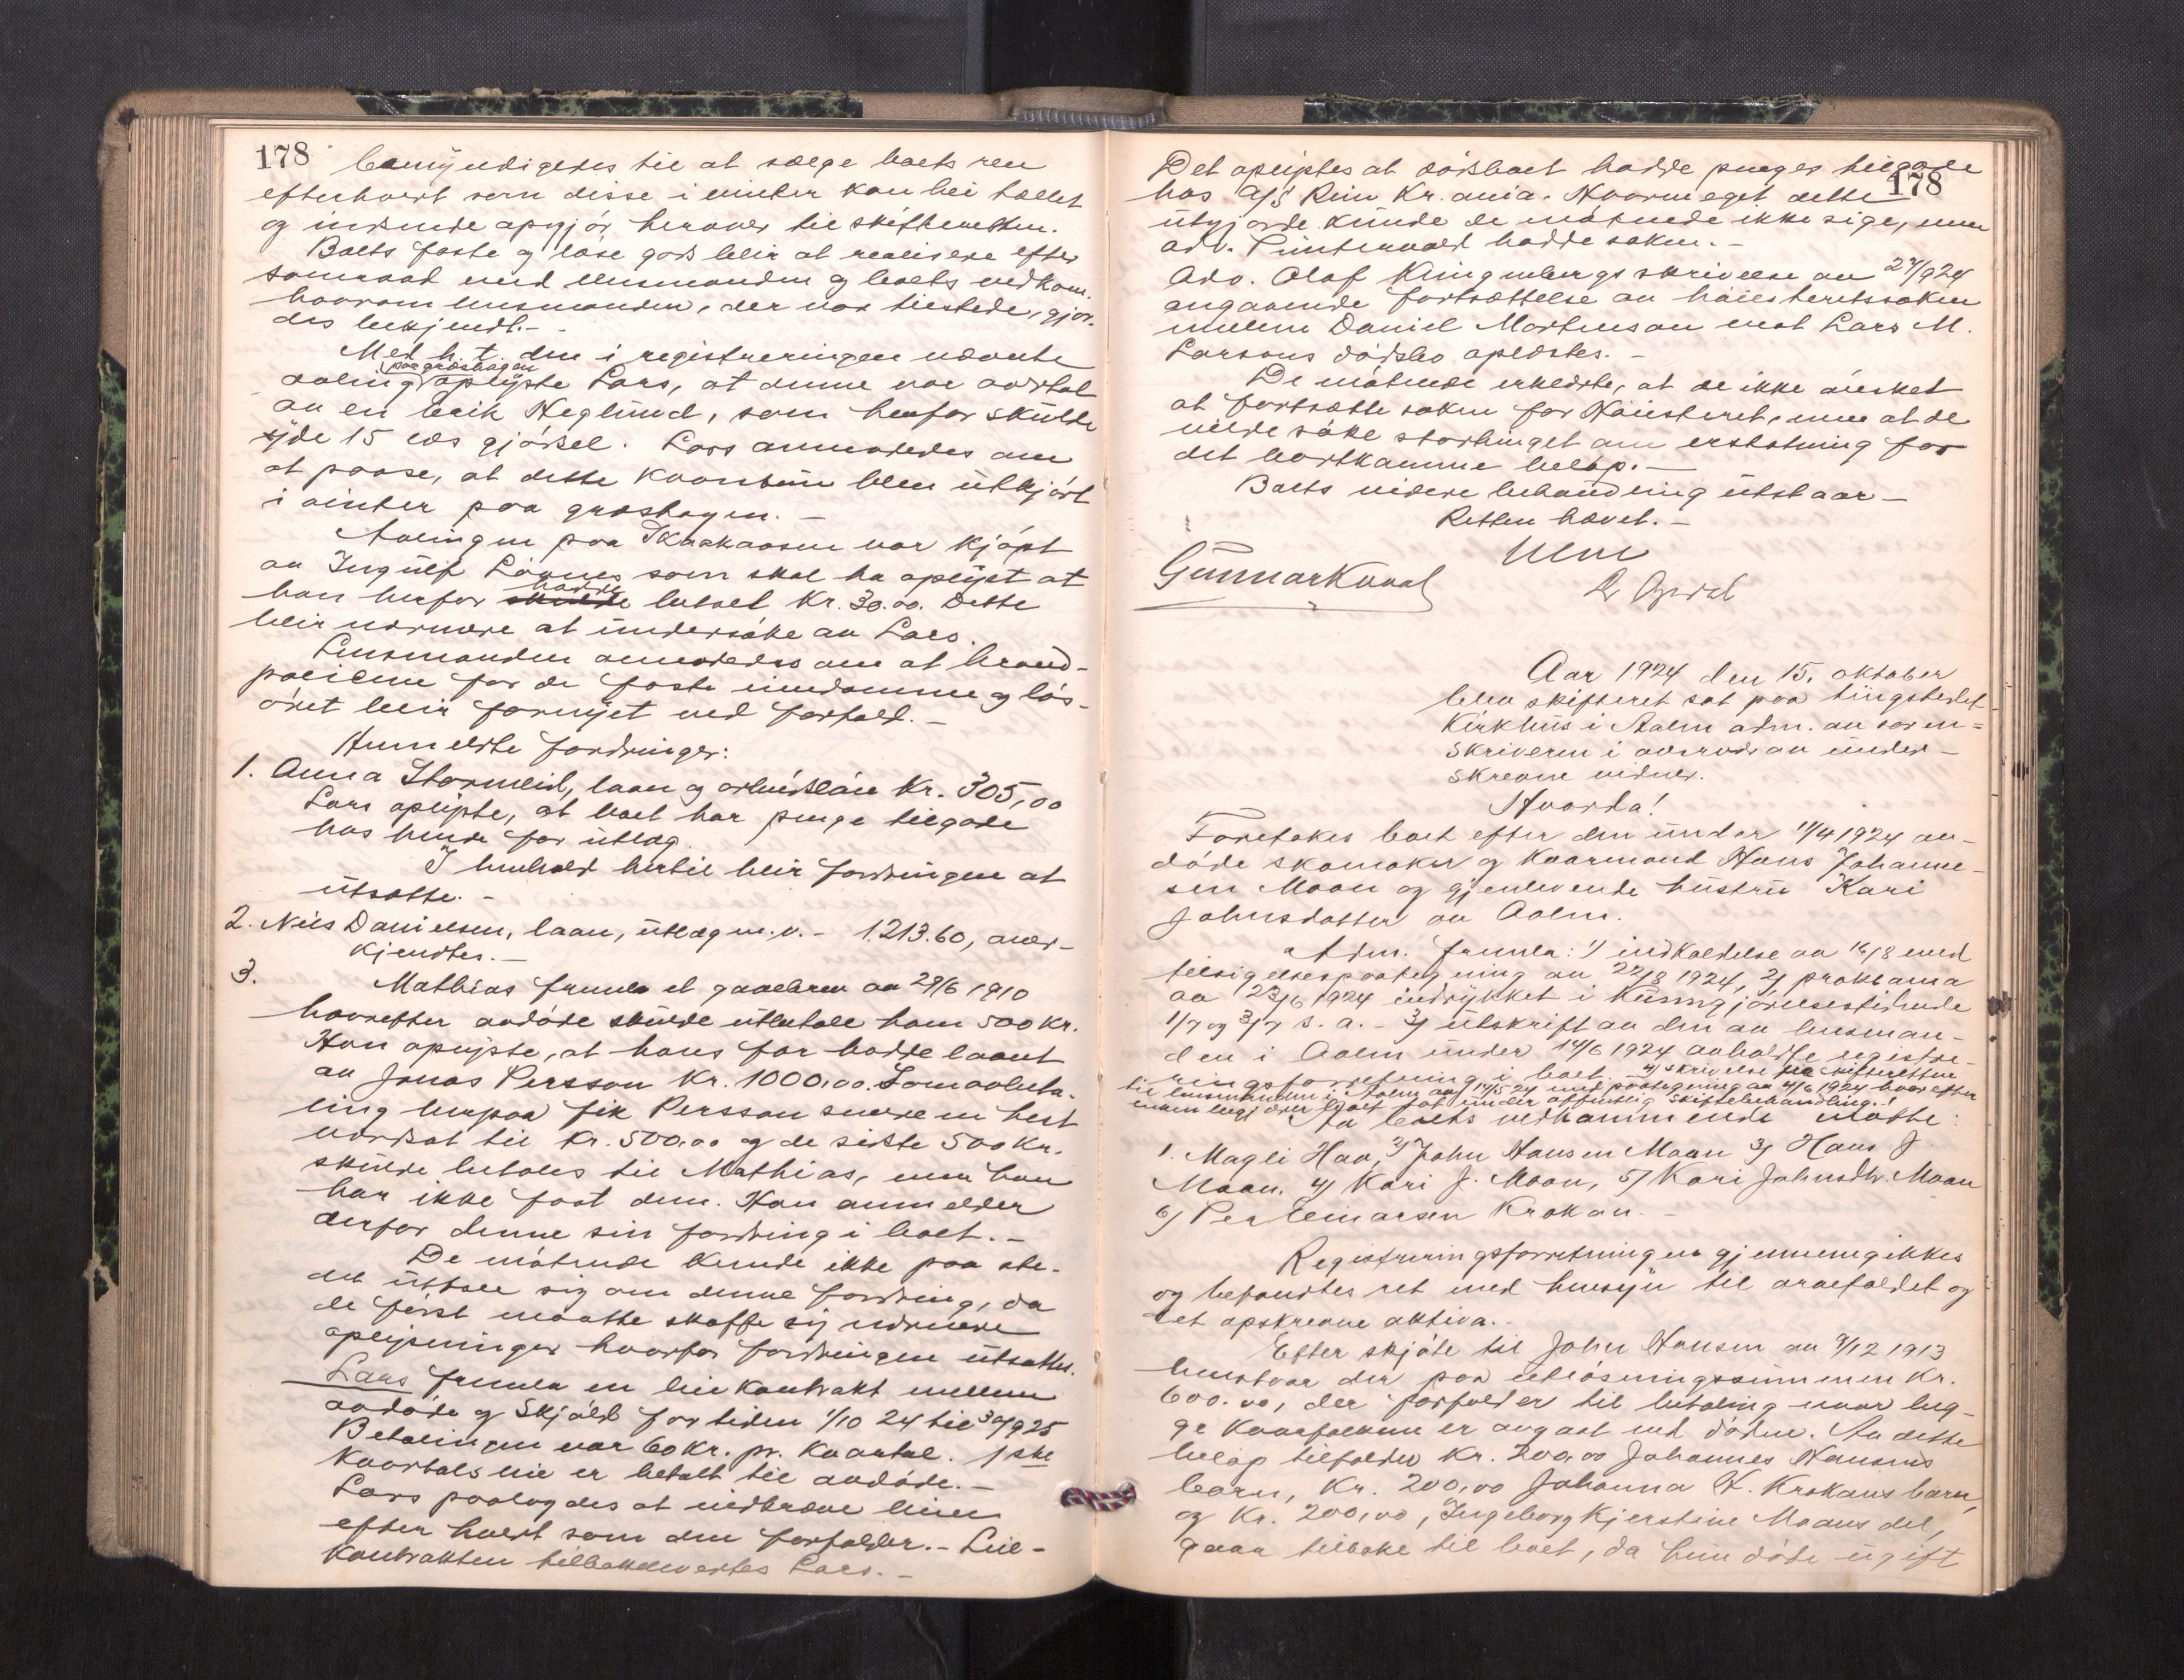 178
bemyndigedes til at sælge boets ren
efterhvert som disse i vinter kan bli tællet
og indsende opgjör herover til skifteretten.
Boets faste og löse gods blir at realisere efter
samraad med lensmanden og boets vedkom.
hvorom lensmanden, der var tilstede, gjor-
des bekjendt.-
Med h. t. den i registreringen nævnte
paa græshagen
avling oplyste Lars, at denne var avertal
av en Erik Heglund, som herfor skulde
yde 15 læs gjödsel. Lars anmodedes om
at paase, at dette kvantum blev utkjört
i vinter paa græshagen.-
Avlingen paa Skaakaasen var kjöpt
av Ingulf Lövnes som skal ha oplyst at
hadde
han herfor skulde betalt kr. 30.00. Dette
blir nærmere at undersöke av Lars.
Lensmanden anmodedes om at brand-
policene for de faste eiendomme og lös-
öret blir fornyet ved forfald.-
Anmeldte fordringer:
1. Anna Stormeid, laan og arbeidslön kr. 305,00
Lars oplyste, at boet har penge tilgode
hos hende for utlæg.
I henhold hertil blir fordringen at
utsætte.-
2. Nils Danielsen, laan, utlæg m.v. - 1.213.60, aner-
kjendtes.-
3. Mathias fremla et gavebrev av 29/6 1910
hvorefter avdöde skulde utbetale ham 500 kr.
Han oplyste, at hans far hadde laant
av Jonas Persson kr. 1000,00. Som avbeta-
ling herpaa fik Persson senere en hest
værdsat til kr. 500,00 og de sidste 500 kr.
skulde betales til Mathias, men han
har ikke faat dem. Han anmelder
derfor denne sin fordring i boet.-
De mötende kunde ikke paa ste-
det uttale sig om denne fordring, da
de först maatte skaffe sig nærmere
oplysninger hvorfor fordringen utsattes.
Lars fremla en leiekontrakt mellem
avdöde og Skjöld for tiden 1/10 24 til 30/9 25
Betalingen var 60 kr. pr. kvartal. 1ste
kvartals leie er betalt til avdöde.-
Lars paalagdes at indkræve leien
efter hvert som den forfalder.- Leie-
kontrakten tilbakeleveredes Lars.-
178
Det oplystes at dödsboet hadde penger tilgode
hos A/S Rein Kr.ania. Hvormeget dette
utgjorde kunde de mötende ikke sige, men
adv. Puntervold hadde saken.-
Adv. Olaf Klingenbergs skrivelse av 27/9 24
angaaende fortsættelse av höiesteretssaken
mellem Daniel Mortenson mot Lars M.
Larsons dödsbo oplæstes.-
De mötende erklærte, at de ikke önsket
at fortsætte saken for Höiesteret, men at de
vilde söke stortinget om erstatning for
det bortkomne belöp.-
Boets videre behandling utstaar.-
Retten hævet.-
Gunnar Kvaal
Aar 1924 den 15. oktober
blev skifteret sat paa tingstedet
Kirkhus i Aalen adm. av soren-
skriveren i overvær av under-
skrevne vidner.
Hvorda!
Foretokes boet efter den under 11/4 1924 av-
döde skomaker og kaarmand Hans Johanne-
sen Moan og gjenlevende hustru Kari
Johnsdatter av Aalen.
Adm. fremla: 1) indkaldelse av 16/8 med
tilsigelsespaategning av 22/8 1924, 2) proklama
av 23/6 1924 indrykket i Kunngjörelsestidende
1/7 og 3/7 s. a. - 3) utskrift av den av lensman-
den i Aalen under 14/6 1924 avholdte registre-
ringsforretning i boet. 4) skrivelse fra skifteretten
til lensmanden i Aalen av 14/5 24 med paategning av 4/6 1924 hvorefter
enken begjærer boet tat under offentlig skiftebehandling.!
Av boets vedkommende mötte:
1. Magli Haa, 2) John Hansen Moan 3) Hans J.
Moan. 4) Kari J. Moan, 5) Kari Johnsdtr. Moan
6) Per Einarsen Krokan.-
Registreringsforretningen gjennemgikkes
og befandtes ret med hensyn til arvefaldet og
det opskrevne aktiva.-
Efter skjöte til John Hansen av 9/12 1913
henstaar der paa utlösningssummen kr.
600.00, der forfalder til betaling naar beg-
ge kaarfolkene er avgaat ved döden. Av dette
belöp tilfalder kr. 200,00 Johannes Hansens
barn, kr. 200,00 Johanna H. Krokans barn,
og kr. 200,00, Ingeborg Kjerstine Moans del,
gaar tilbake til boet, da hun döde ugift